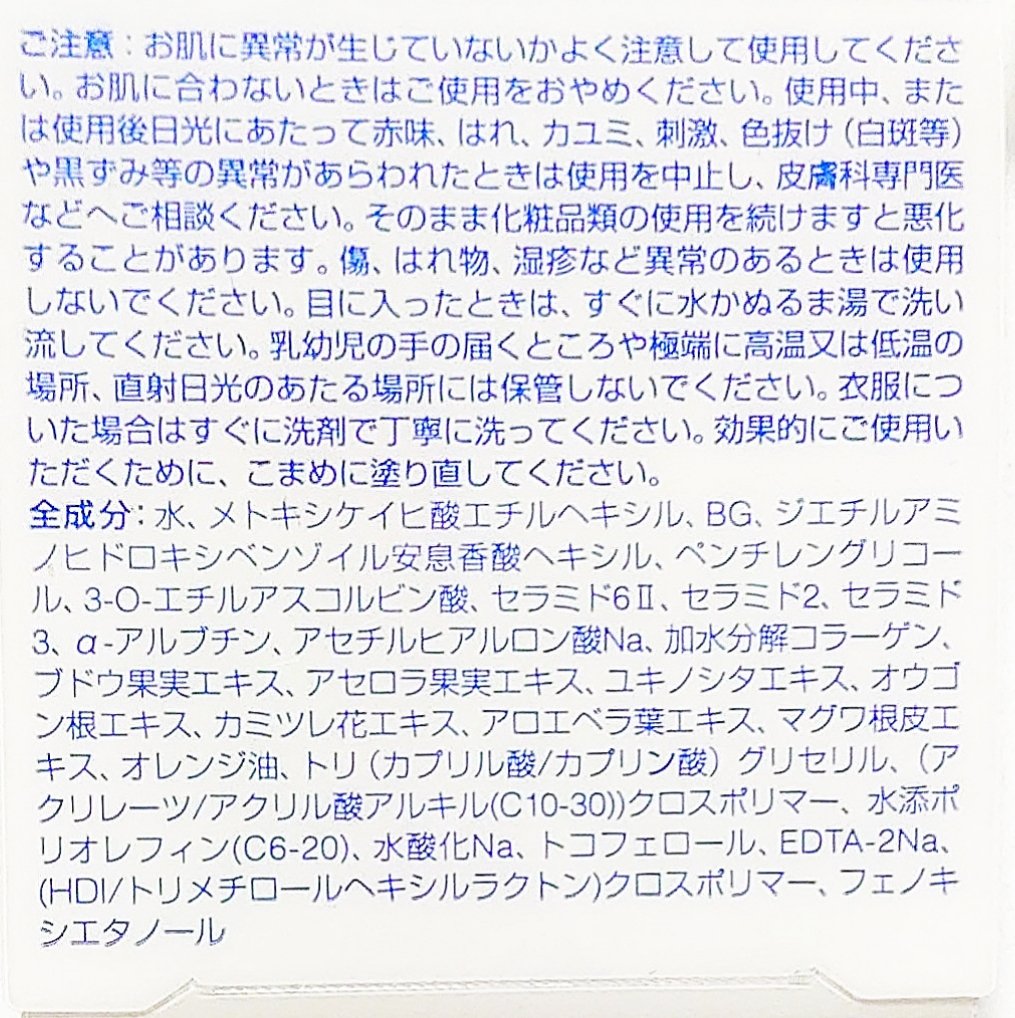 ご注意：お肌に異常が生じていないかよく注意して使用してくださ
い。お肌に合わないときはご使用をおやめください。使用中、また
は使用後日光にあたって赤味、はれ、カユミ、刺激、色抜け（白斑等）
や黒ずみ等の異常があらわれたときは使用を中止し、皮膚科専門医
などへご相談ください。そのまま化粧品類の使用を続けますと悪化
することがあります。傷、はれ物、湿疹など異常のあるときは使用
しないでください。目に入ったときは、すぐに水かぬるま湯で洗い
流してください。乳幼児の手の届くところや極端に高温又は低温の
場所、直射日光のあたる場所には保管しないでください。衣服につ
いた場合はすぐに洗剤で丁寧に洗ってください。効果的にご使用い
ただくために、こまめに塗り直してください。
全成分：水、メトキシケイヒ酸エチルヘキシル、BG、ジエチルアミ
ノヒドロキシベンゾイル安息香酸ヘキシル、ペンチレングリコー
ル、3-O-エチルアスコルビン酸、セラミド6Ⅱ、セラミド2、セラミド
3、α-アルブチン、アセチルヒアルロン酸Na、加水分解コラーゲン、
ブドウ果実エキス、アセロラ果実エキス、ユキノシタエキス、オウゴ
ン根エキス、カミツレ花エキス、アロエベラ葉エキス、マグワ根皮エ
キス、オレンジ油、トリ（カプリル酸/カプリン酸）グリセリル、（ア
クリレーツ/アクリル酸アルキル(C10-30))クロスポリマー、水添ポ
リオレフィン(C6-20)、水酸化Na、トコフェロール、EDTA-2Na、
(HDI/トリメチロールヘキシルラクトン)クロスポリマー、フェノキ
シエタノール